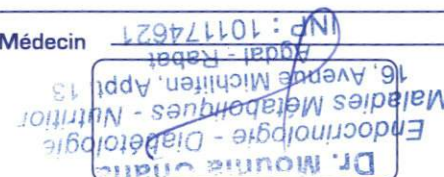 Médecin
Dr. Mounia
Endocrinologie - Diabétologie
Maladies Métaboliques - Nutrition
16, Avenue Michlifen, Appt 13
Agdal - Rabat
INP : 101174621